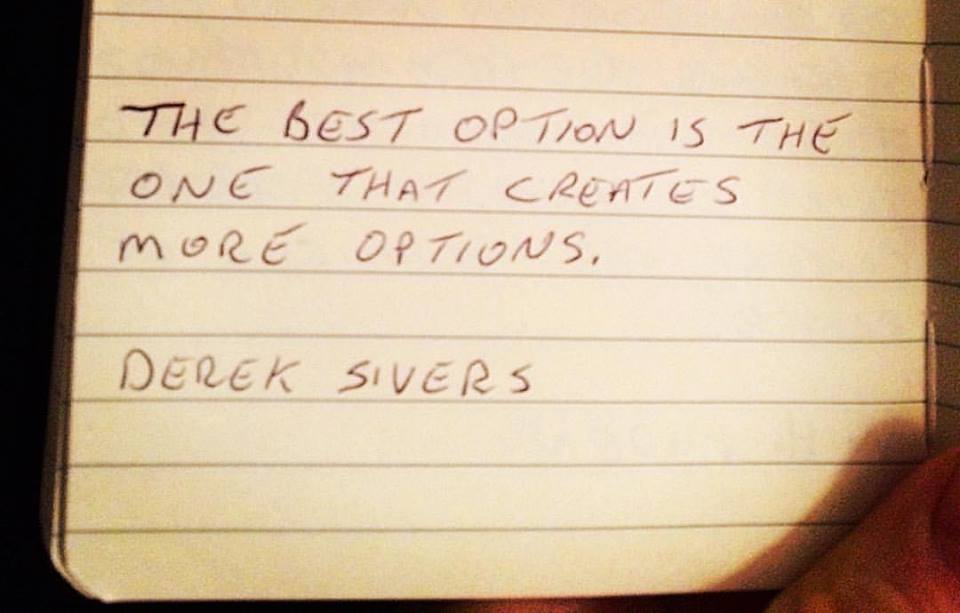 THE BEST OPTION IS THE
ONE THAT CREATES
MORE OPTIONS.
DEREK SIVERS